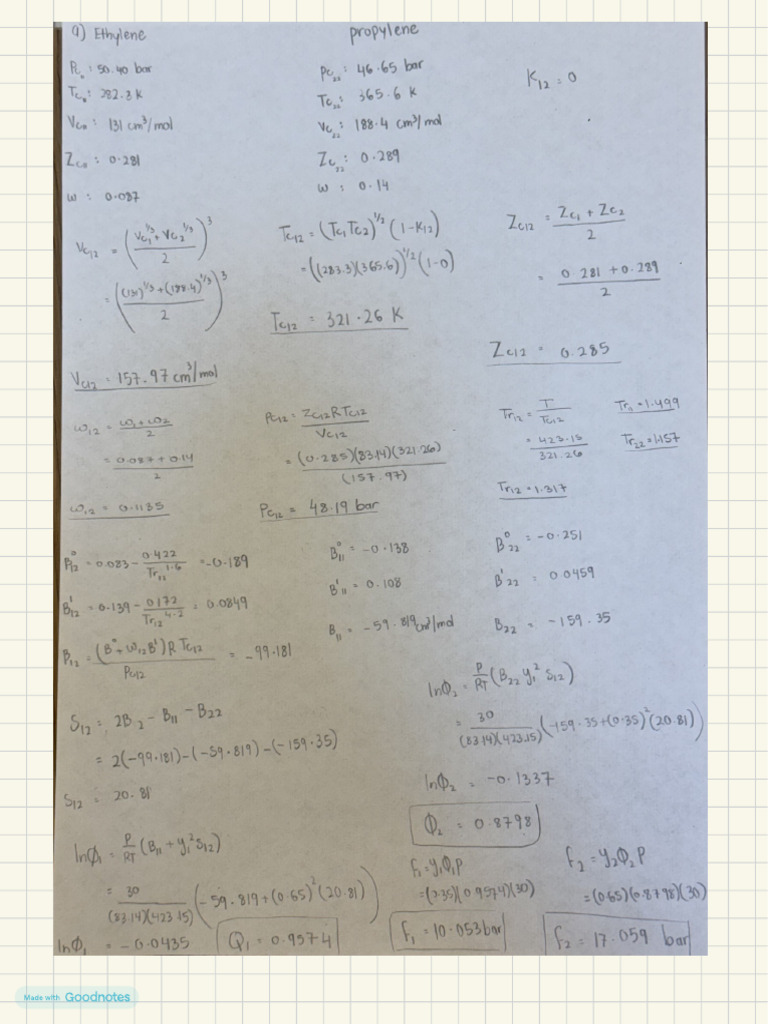 9) Ethylene
propylene
Pc₁₁ : 50.40 bar
Tc₁₁ : 282.3 K
Vc₁₁ : 131 cm³/mol
Zc₁₁ : 0.281
ω : 0.087
Pc₂₂ : 46.65 bar
Tc₂₂ : 365.6 K
Vc₂₂ : 188.4 cm³/mol
Zc₂₂ : 0.289
ω : 0.14
K₁₂ = 0
Vc₁₂ = ((Vc₁^1/3 + Vc₂^1/3)/2)³
= (((131)^1/3 + (188.4)^1/3)/2)³
Vc₁₂ = 157.97 cm³/mol
Tc₁₂ = (Tc₁Tc₂)^1/2 (1-K₁₂)
= ((283.3)(365.6))^1/2 (1-0)
Tc₁₂ = 321.26 K
Zc₁₂ = (Zc₁ + Zc₂)/2
= (0.281 + 0.289)/2
Zc₁₂ = 0.285
ω₁₂ = (ω₁+ω₂)/2
= (0.087+0.14)/2
ω₁₂ = 0.1135
Pc₁₂ = Zc₁₂RTc₁₂/Vc₁₂
= (0.285)(83.14)(321.26)/(157.97)
Pc₁₂ = 48.19 bar
Tr₁₂ = T/Tc₁₂
= 423.15/321.26
Tr₁₂ = 1.317
Tr₁₁ = 1.499
Tr₂₂ = 1.157
B⁰₁₂ = 0.083 - 0.422/Tr₁₂^1.6 = -0.189
B'₁₂ = 0.139 - 0.172/Tr₁₂^4.2 = 0.0849
B₁₂ = (B⁰+ω₁₂B')RTc₁₂/Pc₁₂ = -99.181
B⁰₁₁ = -0.138
B'₁₁ = 0.108
B₁₁ = -59.819 cm³/mol
B⁰₂₂ = -0.251
B'₂₂ = 0.0459
B₂₂ = -159.35
S₁₂ = 2B₁₂ - B₁₁ - B₂₂
= 2(-99.181)-(-59.819)-(-159.35)
S₁₂ = 20.81
lnΦ₁ = P/RT (B₁₁ + y₁²S₁₂)
= 30/(83.14)(423.15) (-59.819+(0.65)²(20.81))
lnΦ₁ = -0.0435
Q₁ = 0.9574
lnΦ₂ = P/RT (B₂₂ y₁² S₁₂)
= 30/(83.14)(423.15) (-159.35+(0.35)²(20.81))
lnΦ₂ = -0.1337
Φ₂ = 0.8798
f₁ = y₁Φ₁P
=(0.35)(0.9574)(30)
f₁ = 10.053 bar
f₂ = y₂Φ₂P
=(0.65)(0.8798)(30)
f₂ = 17.059 bar
Made with Goodnotes